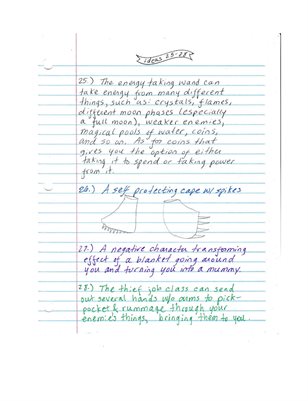 ideas 25-28
25.) The energy taking wand can
take energy from many different
things, such as: crystals, flames,
different moon phases (especially
a full moon), weaker enemies,
magical pools of water, coins,
and so on. As for coins that
gives you the option of either
taking it to spend or taking power
from it.
26.) A self protecting cape w/ spikes
27.) A negative character transforming
effect of a blanket going around
you and turning you into a mummy.
28.) The thief job class can send
out several hands w/o arms to pick-
pocket & rummage through your
enemies things, bringing them to you.